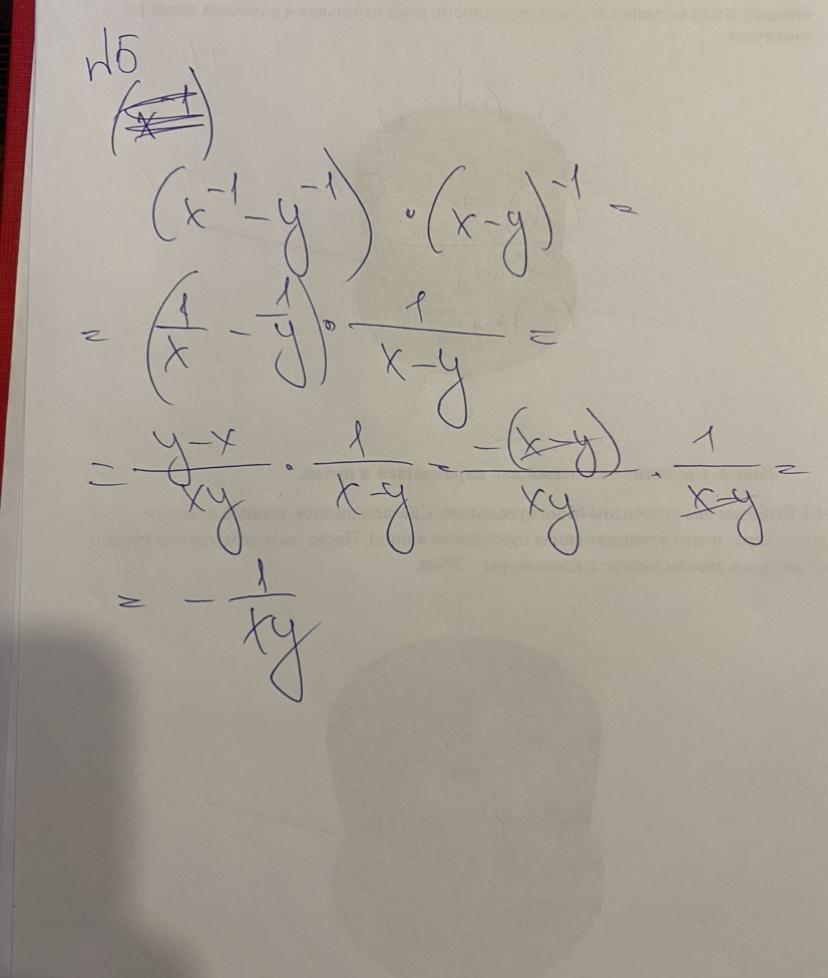 №5
(x^-1 - y^-1) · (x-y)^-1 =
= (1/x - 1/y) · 1/(x-y) =
= (y-x)/(xy) · 1/(x-y) = -(x-y)/(xy) · 1/(x-y) =
= - 1/(xy)